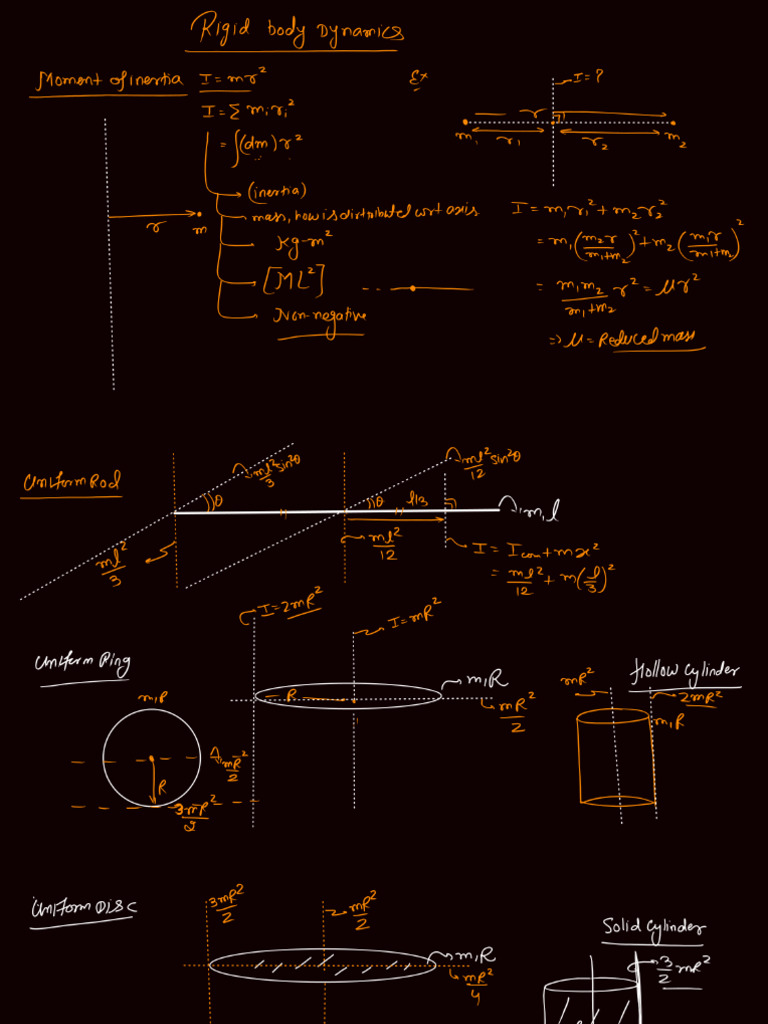 Rigid body Dynamics
Moment of inertia I = mr²
I = Σ miri²
= ∫(dm)r²
(inertia)
mass, how is distributed wrt axis
Kg-m²
[ML²]
Non-negative
r
m
Ex
I = ?
r
m₁ r₁ r₂ m₂
I = m₁r₁² + m₂r₂²
= m₁(m₂r/m₁+m₂)² + m₂(m₁r/m₁+m₂)²
= m₁m₂/m₁+m₂ r² = μr²
⇒ μ = Reduced mass
Uniform Rod
ml²/3 sin²θ
θ
ml²/3
ml²/12 sin²θ
θ l/3
m,l
ml²/12
I = Icom + mx²
= ml²/12 + m(l/3)²
Uniform Ring
I = 2mR²
I = mR²
R
m,R
mR²/2
m,R
mR²/2
R
3mR²/2
Hollow Cylinder
mR²
2mR²
m,R
Uniform DISC
3mR²/2
mR²/2
m,R
mR²/4
Solid Cylinder
3/2 mR²